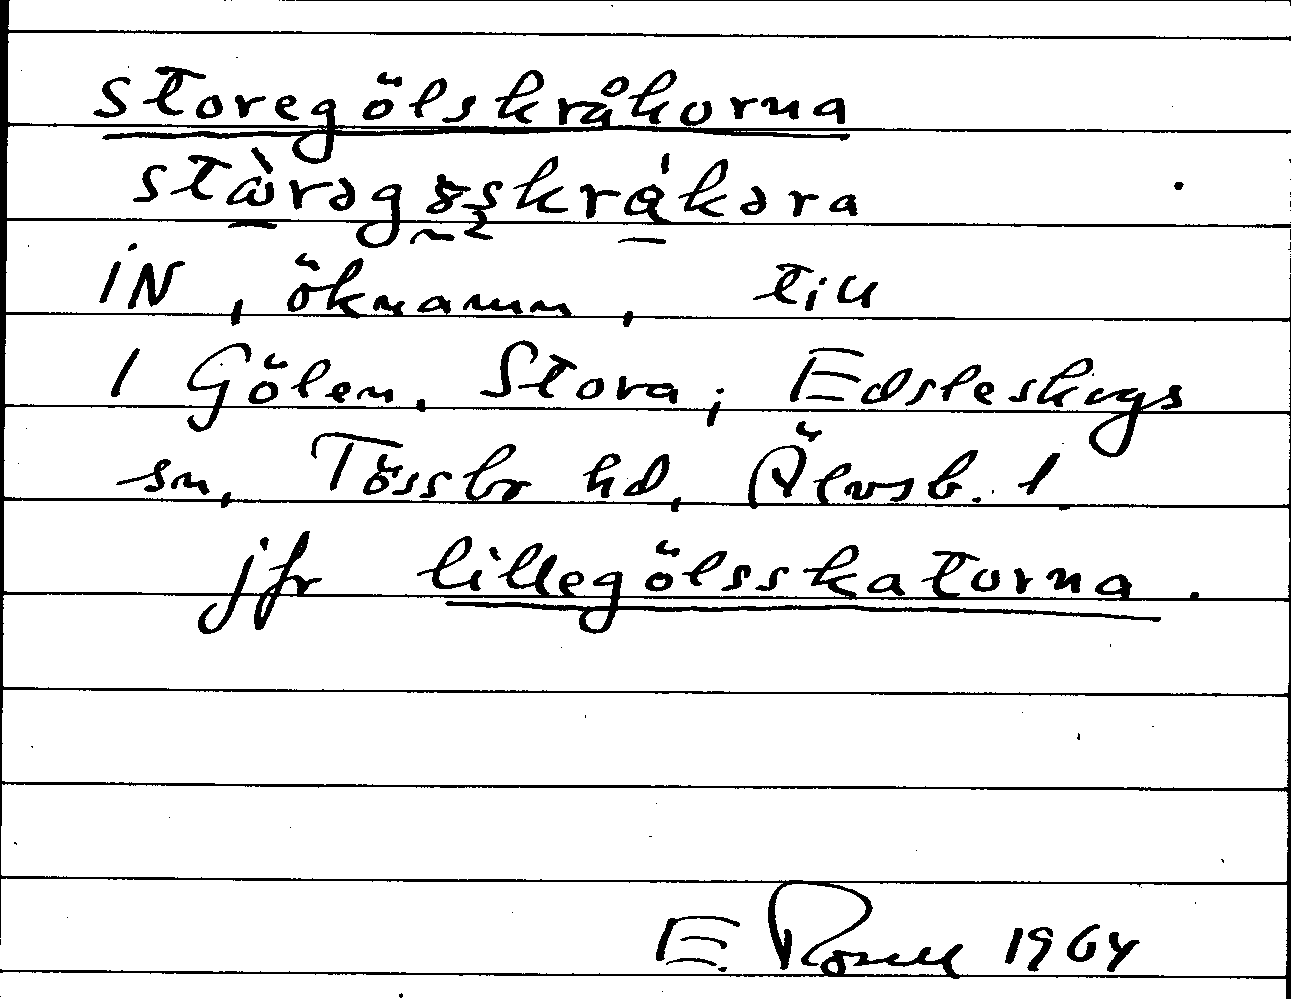 storegölskråkorna
stàrəgɞskrákəra
IN, öknamn, till
1 Gölen, Stora; Edsleskogs
sn, Tössbo hd, Älvsb. l.
jfr lillegölsskatorna.
E. Rosell 1964